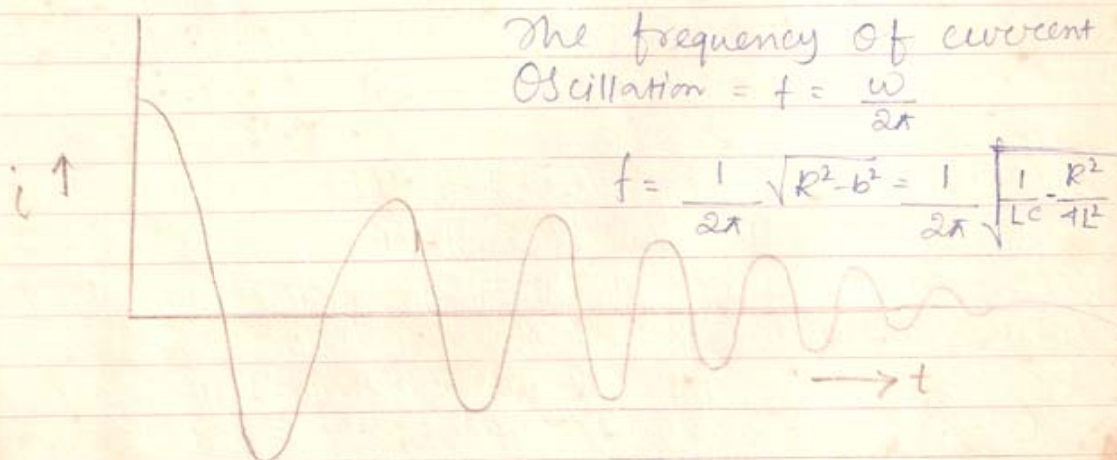 The frequency of current
Oscillation = f = ω/2π
f = 1/2π √R²-b² = 1/2π √1/LC - R²/4L²
i ↑
→ t